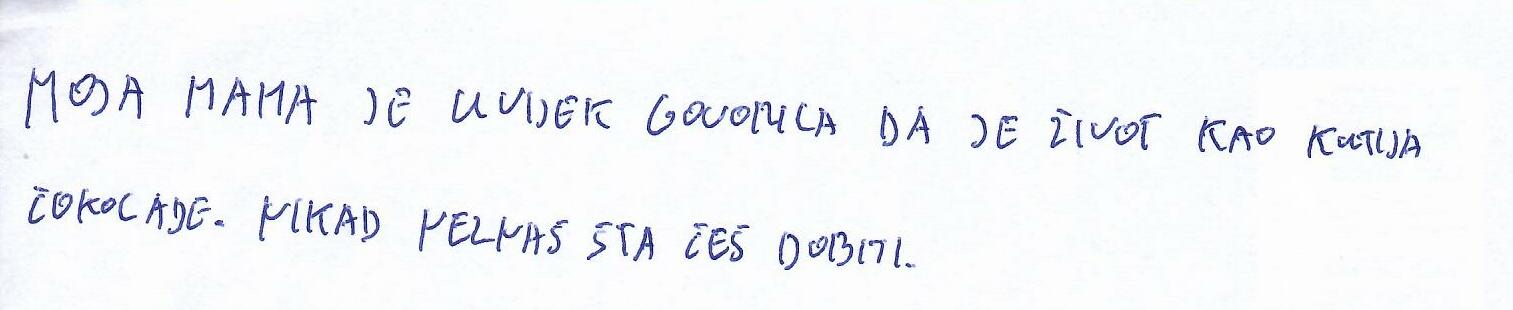 MOJA MAMA JE UVIJEK GOVORILA DA JE ŽIVOT KAO KUTIJA
ČOKOLADE. NIKAD NEZNAŠ ŠTA ĆEŠ DOBITI.